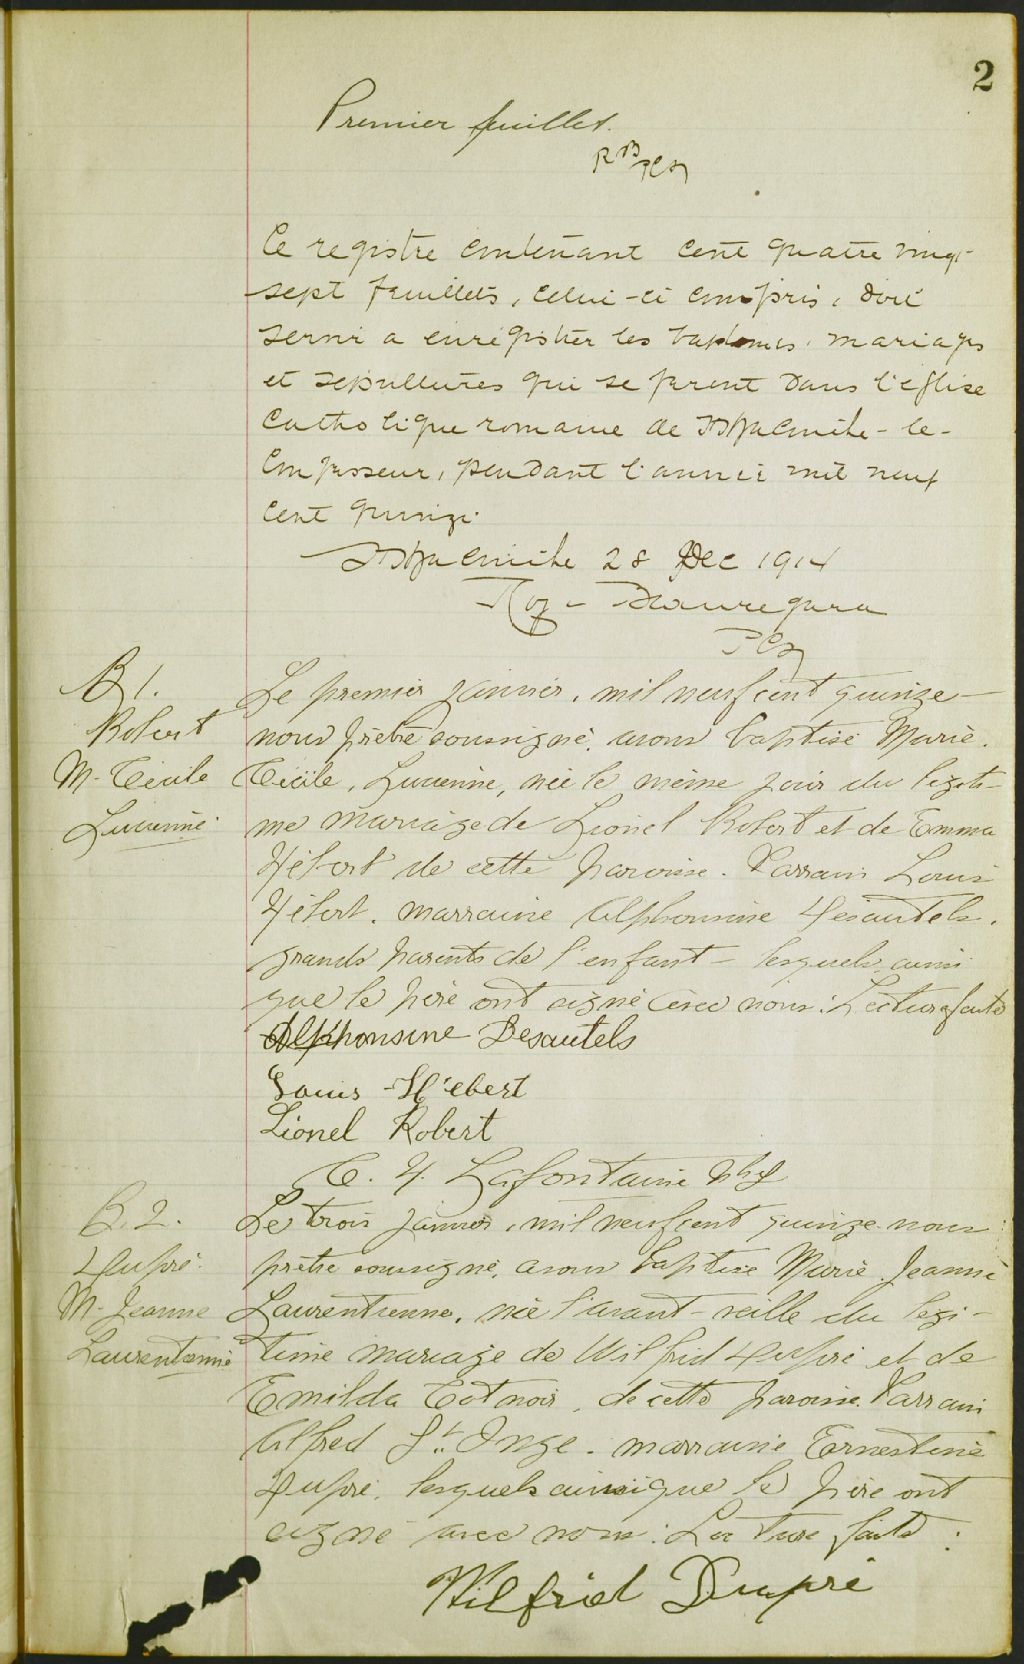 2
Premier feuillet.
RB PCS
Ce registre contenant cent quatre vingt
sept feuillets, celui-ci compris, doit
servir a enrégistrer les baptemes, mariages
et sepultures qui se feront dans l'eglise
Catholique romaine de St Hyacinthe-le-
Confesseur, pendant l'année mil neuf
cent quinze.
St Hyacinthe 28 Dec 1914
Beauregard
PCS
B 1.
Robert
M. Cécile
Lucienne
Le premier janvier, mil neuf cent quinze
nous prêtre soussigné, avons baptisé Marie
Cécile, Lucienne, née le même jour du légiti-
me mariage de Lionel Robert et de Emma
Hébert de cette paroisse. Parrain Louis
Hébert, marraine Alphonsine Desautels,
grands parents de l'enfant - lesquels ainsi
que le père ont signé avec nous. Lecture faite
Alphonsine Desautels
Louis Hébert
Lionel Robert
C. H. Lafontaine Ptre
B. 2.
Dupré
M. Jeanne
Laurentienne
Le trois janvier, mil neuf cent quinze nous
prêtre soussigné, avons baptisé Marie Jeanne
Laurentienne, née l'avant-veille du légi-
time mariage de Wilfrid Dupré et de
Emilda Cotnoir, de cette paroisse. Parrain
Alfred St. Onge. marraine Ernestine
Dupré, lesquels ainsi que le père ont
signé avec nous. Lecture faite.
Wilfrid Dupré